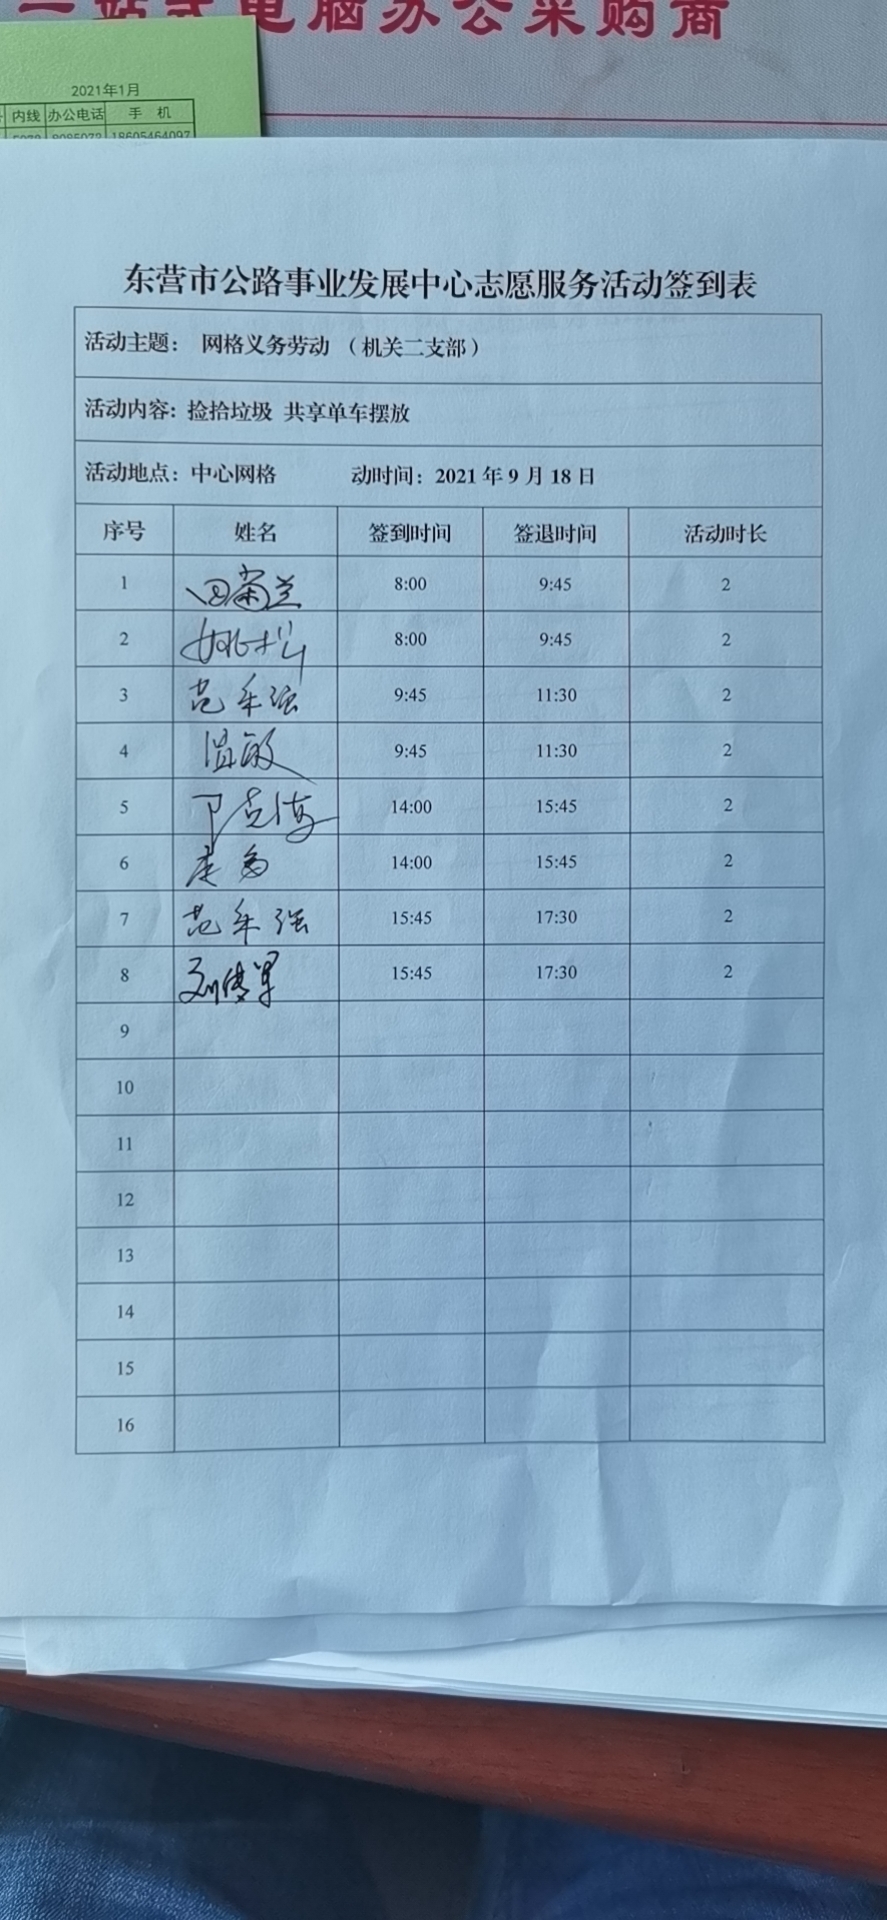 一站式电脑办公采购商
2021年1月
内线 办公电话 手 机
18605464097
东营市公路事业发展中心志愿服务活动签到表
活动主题： 网格义务劳动 （机关二支部）
活动内容: 捡拾垃圾 共享单车摆放
活动地点: 中心网格 动时间: 2021 年 9 月 18 日
序号 姓名 签到时间 签退时间 活动时长
1 田菊兰 8:00 9:45 2
2 姚松 8:00 9:45 2
3 范年强 9:45 11:30 2
4 温敏 9:45 11:30 2
5 14:00 15:45 2
6 14:00 15:45 2
7 范年强 15:45 17:30 2
8 15:45 17:30 2
9
10
11
12
13
14
15
16